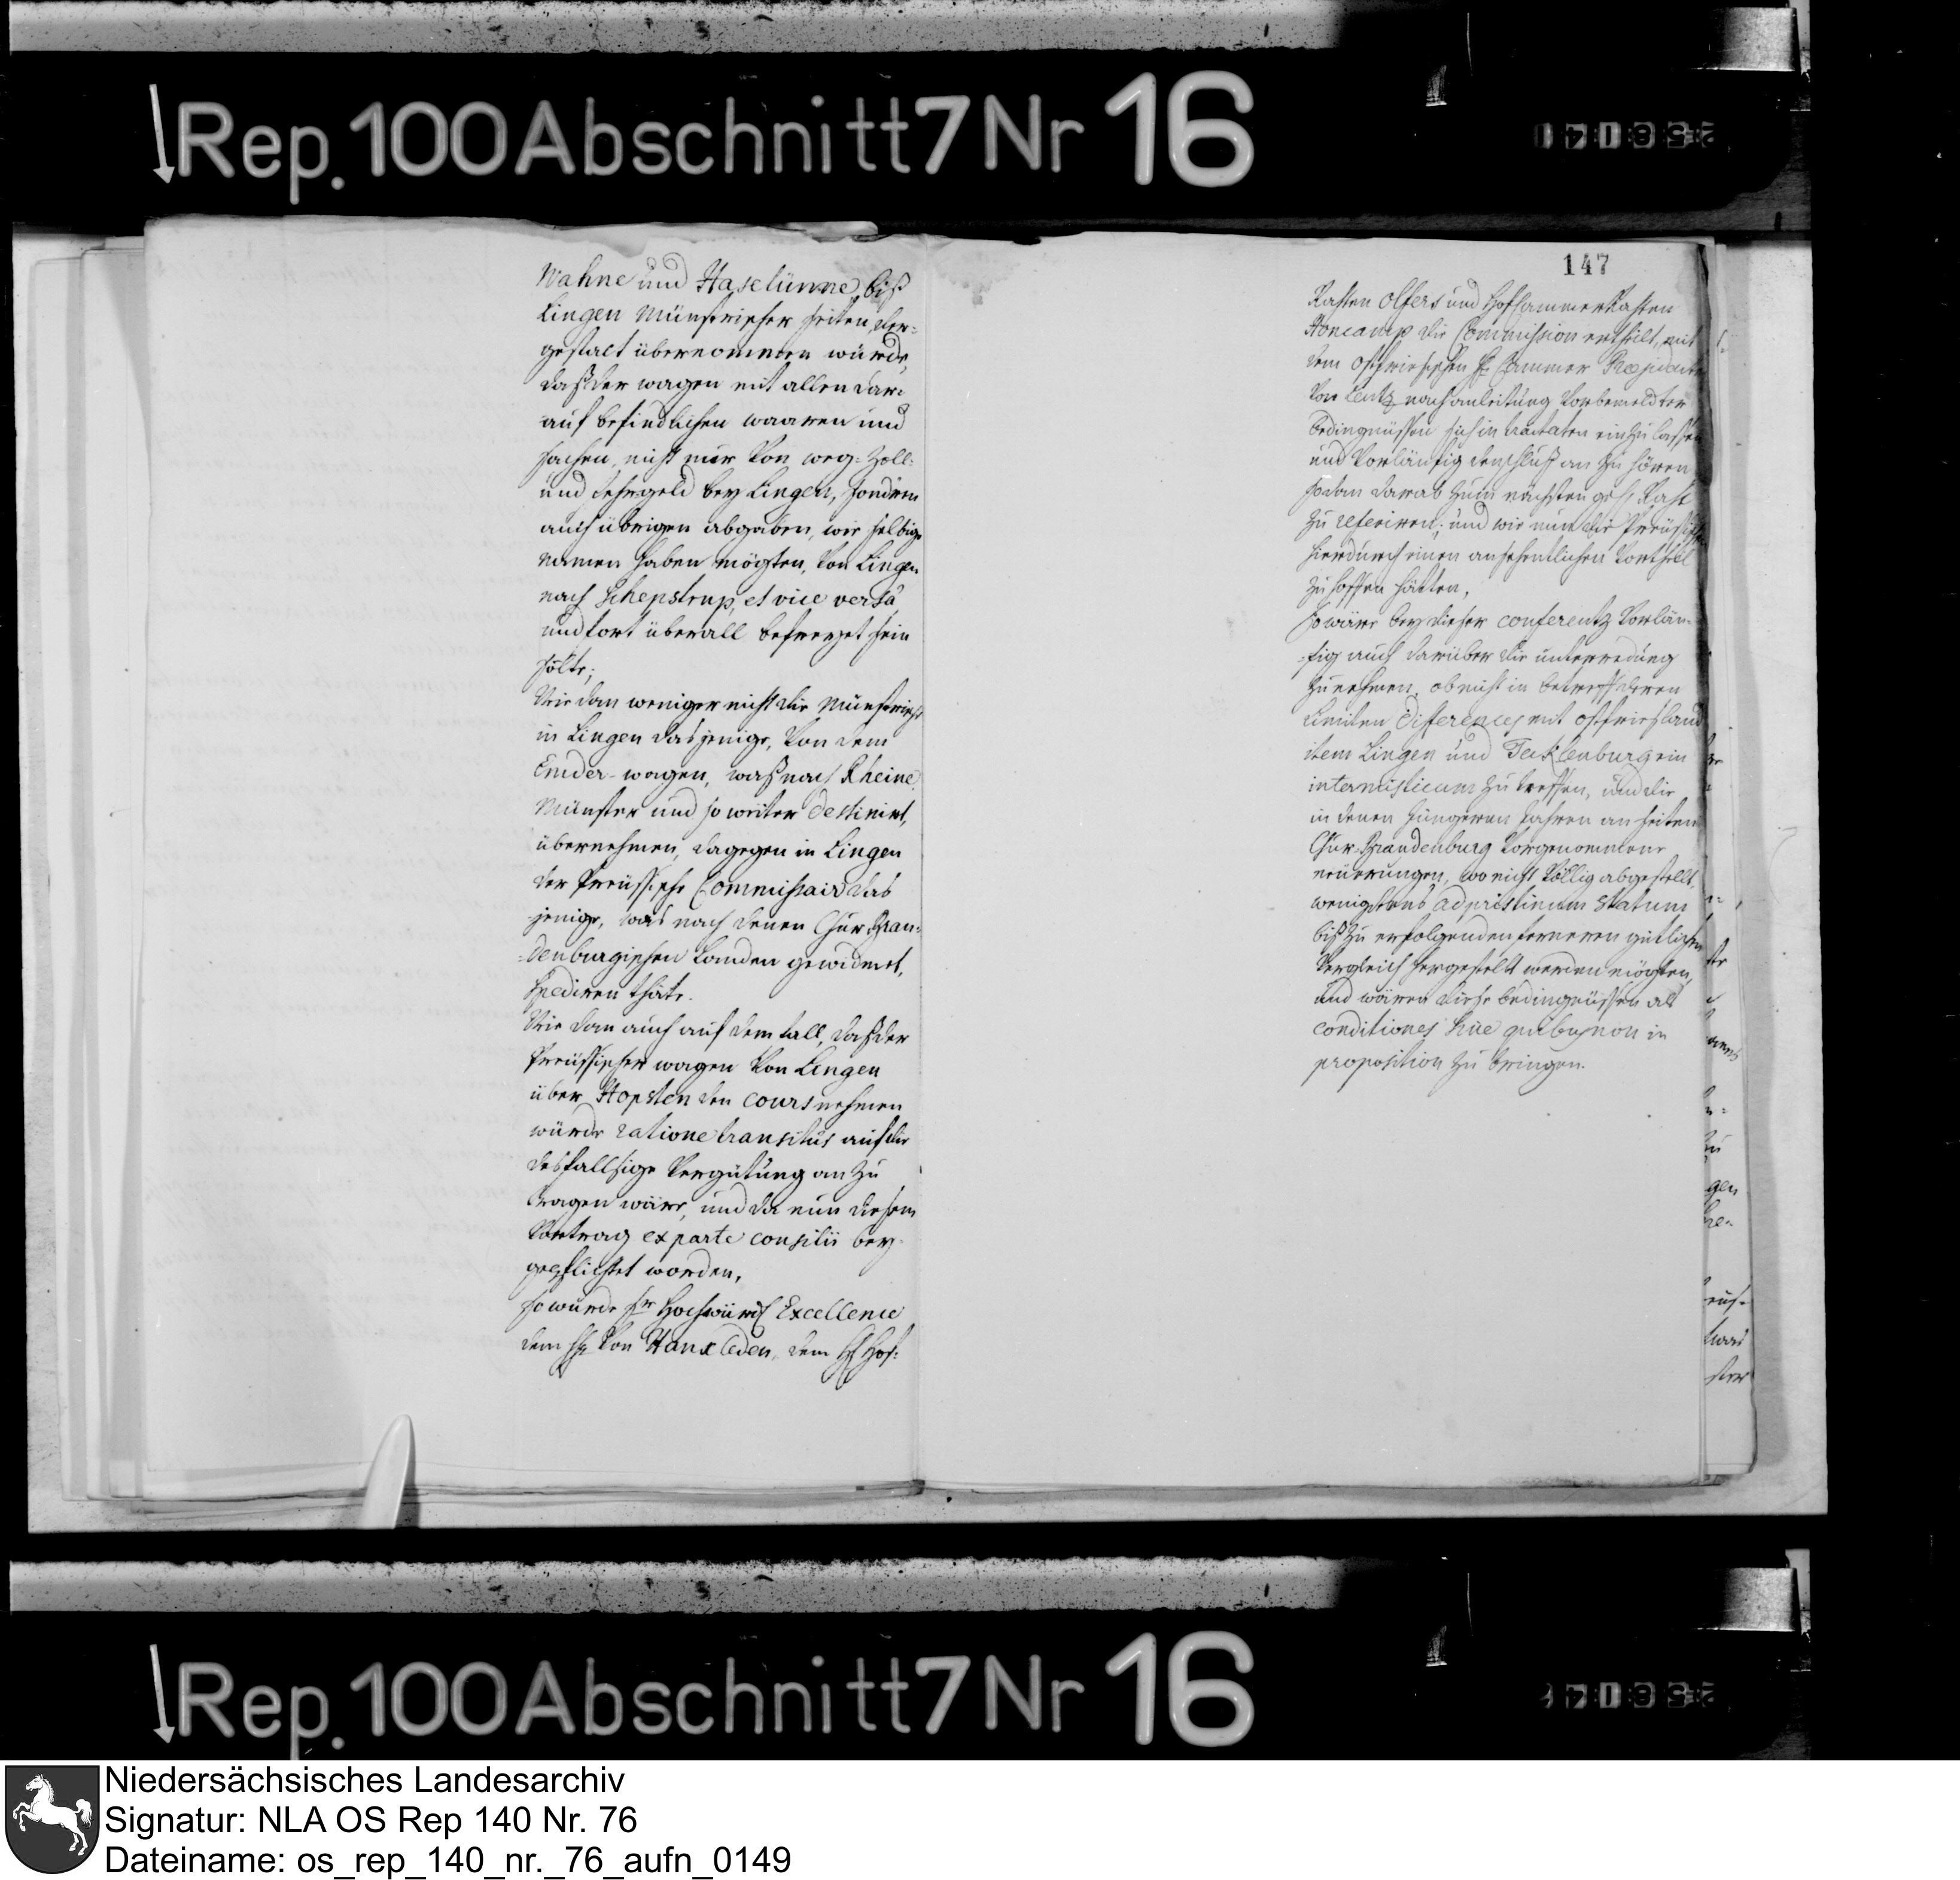 Rep. 100 Abschnitt 7 Nr 16
Wahne und Haselünne biß
Lingen Münsterischer seiten, der=
gestalt übernommen würde,
daß der wagen mit allen dar=
auf befindlichen waaren und
sachen, nicht nur von weg= Zoll=
und fehrgeld bey Lingen, sondern
auch übrigen abgaben, wie selbige
namen haben mögten, von Lingen
nach Schepstrup, et vice versa,
und fort überall befreyet sein
solte;
Wie dan weniger nicht die Münsterische
in Lingen dasjenige, von dem
Emder-wagen, waß nach Rheine,
Münster und so weiter destinirt,
übernehmen, dagegen in Lingen
der Preüssische Commissair das
jenige, was nach denen Chur Bran=
=denburgischen Landen gewidmet,
spediren thäte.
Wie dan auch auf dem fall, daß der
Preüssischer wagen von Lingen
über Hopsten den cours nehmen
würde ratione transitus auf die
desfallsige Vergütung an zu
tragen wäre, und da nun diesem
Vortrag ex parte consilii bey=
gepflichtet worden,
so wurde Sr Hochwürd Excellence
dem H. von Hanxleden, dem H Hof=
147
Rathen Olfers und Hofkammer Rathen
Honcamp die Commission ertheilt, mit
dem ostfriesischen H. Cammer Præsidenten
von Lentz nach anleitung vorbemeldter
bedingnüssen sich in tractaten einzulassen
und vorläufig den schluß an zu hören
sodan darab zum nächsten geh. Rath
zu referiren; und wie nun die Preüssische
hierdurch einen ansehentlichen Vortheil
zu hoffen hätten,
so wäre bey dieser conferentz vorläu=
=fig auch darüber die unterredung
zu nehmen, ob nicht in betreff deren
Limiten differences mit ostfriesland
item Lingen und Tecklenburg ein
interimisticum zu treffen, und die
in denen jüngeren jahren an seiten
Chur-Brandenburg vorgenommene
neüerungen, wo nicht völlig abgestellt,
wenigstens ad pristinum statum
biß zu erfolgenden ferneren gütlichen
Vergleich hergestellt werden mögten,
und wären diese bedingnüssen als
conditiones sine quibus non in
proposition zu bringen.
Rep. 100 Abschnitt 7 Nr 16
Niedersächsisches Landesarchiv
Signatur: NLA OS Rep 140 Nr. 76
Dateiname: os_rep_140_nr._76_aufn_0149